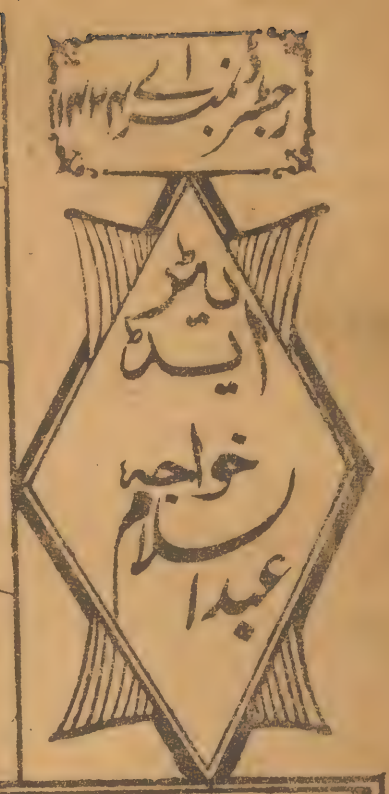 رجسٹرڈ نمبر اے ۱۴۲۴
ایڈیٹر
خواجہ
عبدالسلام